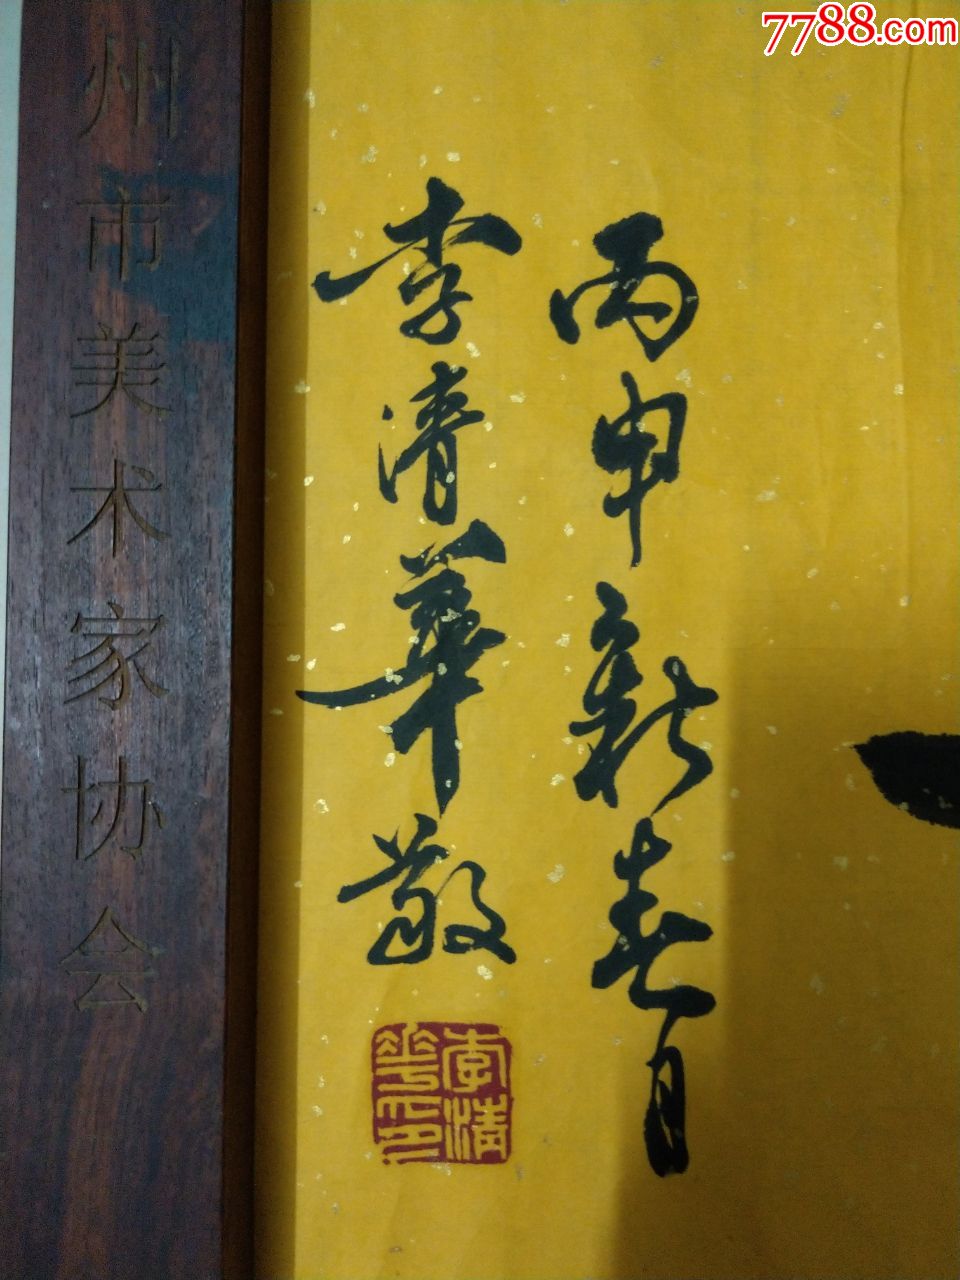 7788.com
丙申新春月
李清華敬
李清華印
州市美术家协会